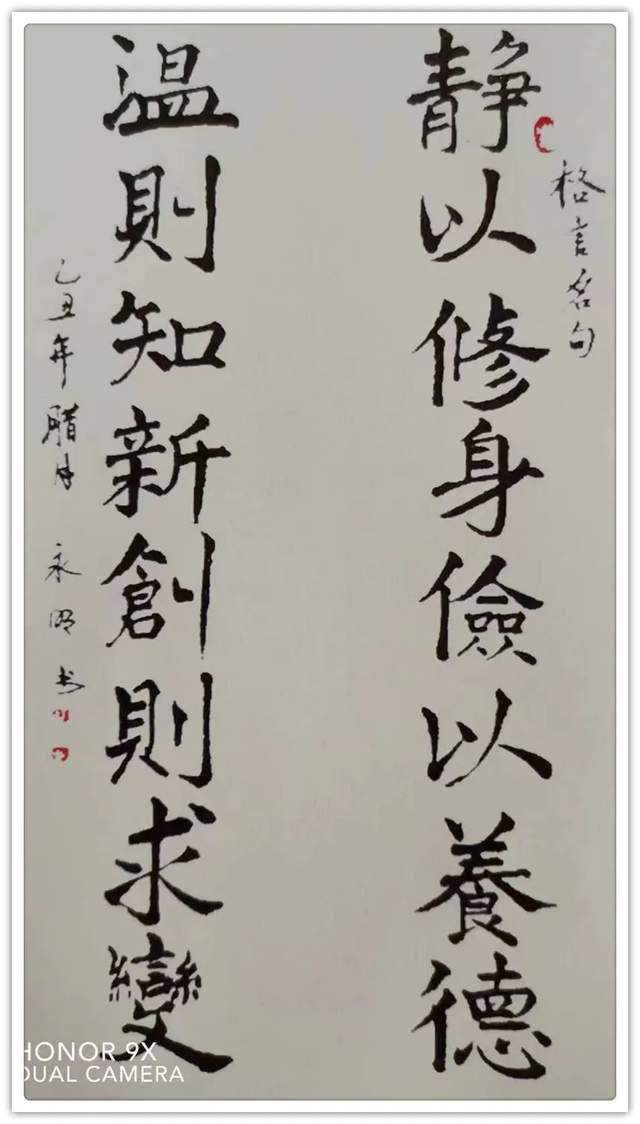 格言名句
静以修身儉以養德
温則知新創則求變
乙丑年腊月 永明书
HONOR 9X
DUAL CAMERA